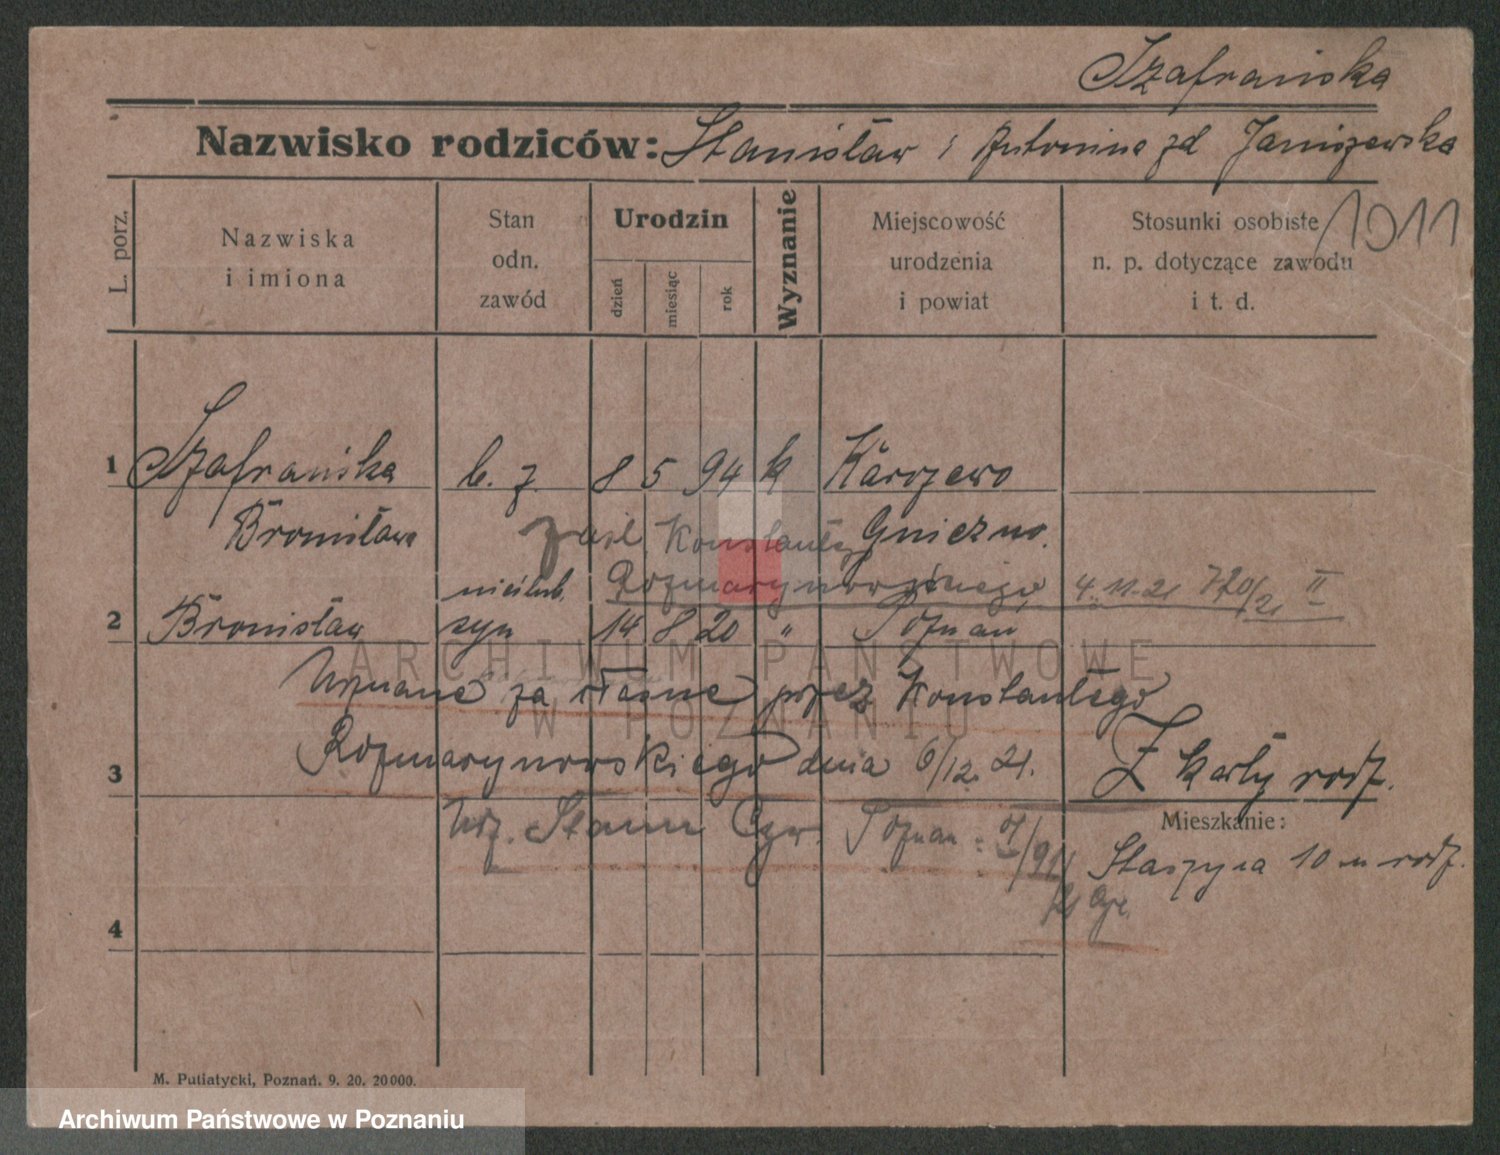 Szafrańska
Nazwisko rodziców: Stanisław i Antonina zd Janiszewska
L. porz.
Nazwiska i imiona
Stan odn. zawód
Urodzin
dzień
miesiąc
rok
Wyznanie
Miejscowość urodzenia i powiat
Stosunki osobiste n. p. dotyczące zawodu i t. d.
1911
1 Szafrańska b. z. 8 5 94 k Karczewo
Bronisława zaśl. Konstanty Gniezno.
nieślub. Rozmarynowskiego 4.11.21 720/21 II
2 Bronisław syn 14 8 20 " Poznań
Uznane za własne przez Konstantego
3 Rozmarynowskiego dnia 6/12. 21. Z karty rodz.
Urz. Stanu Cyw. Poznań
Mieszkanie:
Staszyca 10 m rodz.
4
M. Putiatycki, Poznań. 9. 20. 20000.
ARCHIWUM PAŃSTWOWE
W POZNANIU
Archiwum Państwowe w Poznaniu